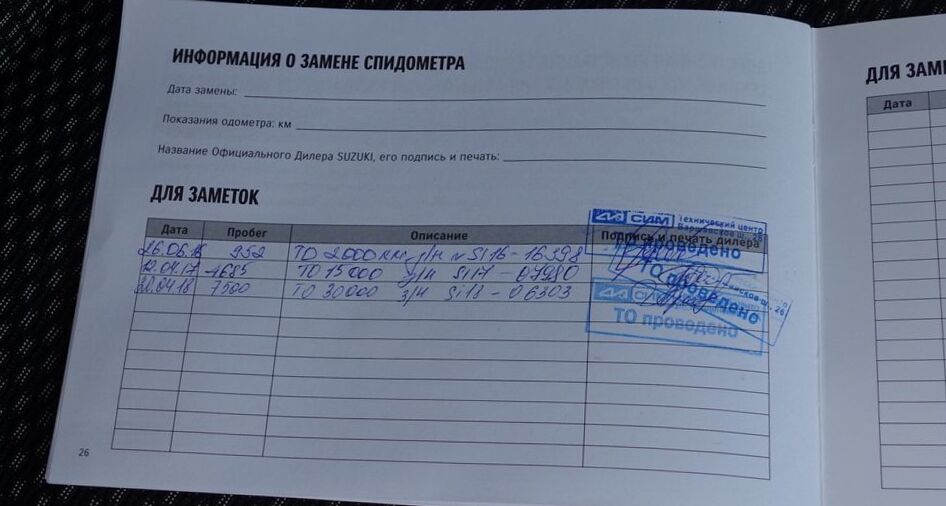 ИНФОРМАЦИЯ О ЗАМЕНЕ СПИДОМЕТРА
Дата замены:
Показания одометра: км
Название Официального Дилера SUZUKI, его подпись и печать:
ДЛЯ ЗАМЕТОК
Дата Пробег Описание Подпись и печать дилера
26.06.16 952 ТО 2000 км. з/н № Si16-16398
12.04.17 4685 ТО 15000 з/н Si17-07980
20.04.18 7500 ТО 30000 з/н Si18-06303
СИМ Технический центр
Варшавское ш. 26
проведено
ТО проведено
ТО проведено
26
ДЛЯ ЗАМ
Дата